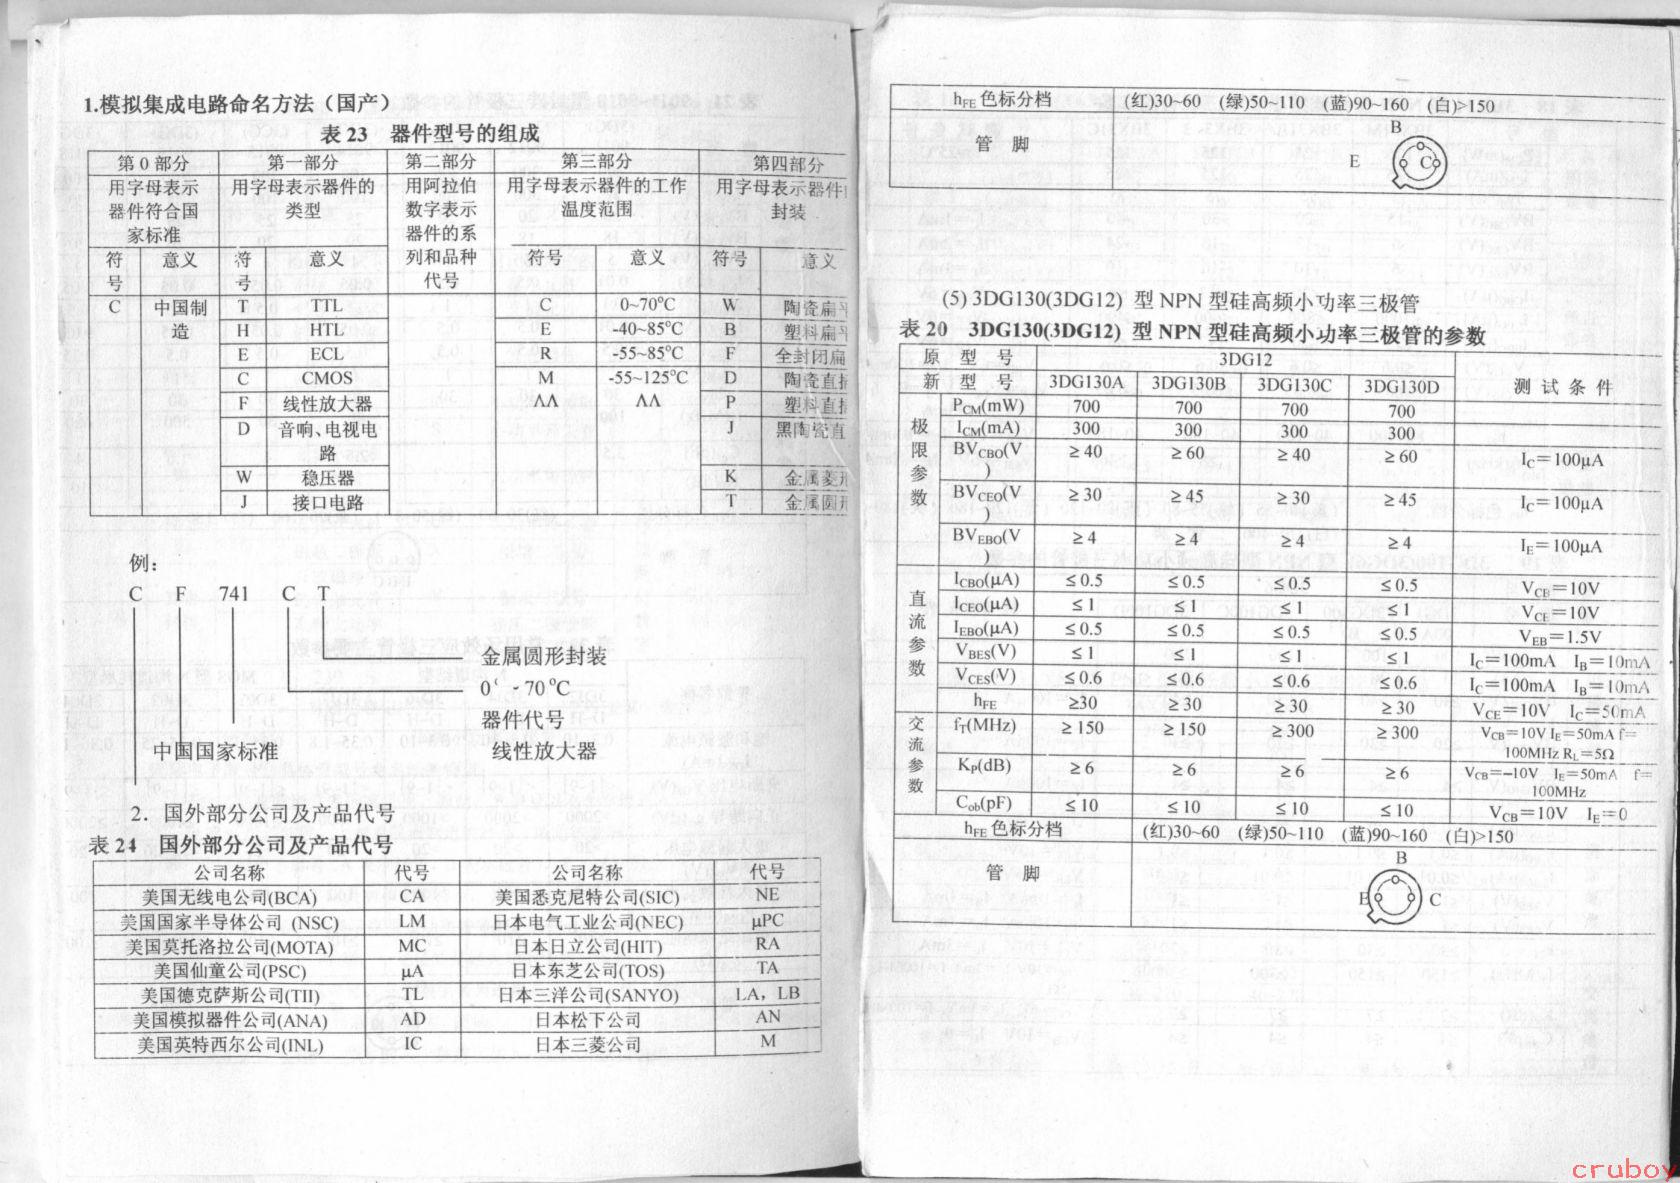 1.模拟集成电路命名方法（国产）
表 23 器件型号的组成
第 0 部分 第一部分 第二部分 第三部分 第四部分
用字母表示器件符合国家标准 用字母表示器件的类型 用阿拉伯数字表示器件的系列和品种代号 用字母表示器件的工作温度范围 用字母表示器件 封装
符号 意义 符号 意义 符号 意义 符号 意义
C 中国制造 T TTL C 0~70°C W 陶瓷扁平
H HTL E -40~85°C B 塑料扁平
E ECL R -55~85°C F 全封闭扁
C CMOS M -55~125°C D 陶瓷直插
F 线性放大器 ΛΛ ΛΛ P 塑料直插
D 音响、电视电路 J 黑陶瓷直
W 稳压器 K 金属菱形
J 接口电路 T 金属圆形
例：
C F 741 C T
金属圆形封装
0 - 70 °C
器件代号
中国国家标准 线性放大器
2．国外部分公司及产品代号
表 24 国外部分公司及产品代号
公司名称 代号 公司名称 代号
美国无线电公司(BCA) CA 美国悉克尼特公司(SIC) NE
美国国家半导体公司 (NSC) LM 日本电气工业公司(NEC) μPC
美国莫托洛拉公司(MOTA) MC 日本日立公司(HIT) RA
美国仙童公司(PSC) μA 日本东芝公司(TOS) TA
美国德克萨斯公司(TII) TL 日本三洋公司(SANYO) LA，LB
美国模拟器件公司(ANA) AD 日本松下公司 AN
美国英特西尔公司(INL) IC 日本三菱公司 M
hFE 色标分档 (红)30~60 (绿)50~110 (蓝)90~160 (白)>150
管 脚 B
E C
(5) 3DG130(3DG12) 型 NPN 型硅高频小功率三极管
表 20 3DG130(3DG12) 型 NPN 型硅高频小功率三极管的参数
原 型 号 3DG12 测 试 条 件
新 型 号 3DG130A 3DG130B 3DG130C 3DG130D
极限参数 PCM(mW) 700 700 700 700
ICM(mA) 300 300 300 300
BVCBO(V) ≥40 ≥60 ≥40 ≥60 IC＝100μA
BVCEO(V) ≥30 ≥45 ≥30 ≥45 IC＝100μA
BVEBO(V) ≥4 ≥4 ≥4 ≥4 IE＝100μA
直流参数 ICBO(μA) ≤0.5 ≤0.5 ≤0.5 ≤0.5 VCB＝10V
ICEO(μA) ≤1 ≤1 ≤1 ≤1 VCE＝10V
IEBO(μA) ≤0.5 ≤0.5 ≤0.5 ≤0.5 VEB＝1.5V
VBES(V) ≤1 ≤1 ≤1 ≤1 IC＝100mA IB＝10mA
VCES(V) ≤0.6 ≤0.6 ≤0.6 ≤0.6 IC＝100mA IB＝10mA
hFE ≥30 ≥30 ≥30 ≥30 VCE＝10V IC＝50mA
交流参数 fT(MHz) ≥150 ≥150 ≥300 ≥300 VCB＝10V IE＝50mA f＝100MHz RL＝5Ω
KP(dB) ≥6 ≥6 ≥6 ≥6 VCB＝–10V IE＝50mA f＝100MHz
Cob(pF) ≤10 ≤10 ≤10 ≤10 VCB＝10V IE＝0
hFE 色标分档 (红)30~60 (绿)50~110 (蓝)90~160 (白)>150
管 脚 B
E C
cruboy